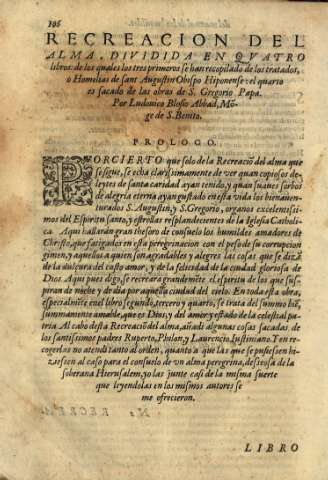 196
RECREACION DEL
ALMA, DIVIDIDA EN QVATRO
libros: de los quales los tres primeros se han recopilado de los tratados,
o Homelias de sant Augustin Obispo Hiponense: el quarto
es sacado de las obras de S. Gregorio Papa.
Por Ludouico Blosio Abbad, Mō
ge de S. Benito.
PROLOGO.
PORCIERTO que solo de la Recreaciō del alma que
se sigue, se echa clarissimamente de ver quan copiosos de-
leytes de santa caridad ayan tenido, y quan suaues sorbos
de alegria eterna ayan gustado en esta vida los bienauen-
turados S. Augustin, y S. Gregorio, organos excelentissi-
mos del Espiritu santo, y estrellas resplandecientes de la Iglesia Catholi-
ca. Aqui hallarán gran thesoro de consuelo los humildes amadores de
Christo, que fatigados en esta peregrinacion con el peso de su corrupcion
gimen, y aquellos a quien son agradables y alegres las cosas que se dizē
de la dulçura del casto amor, y de la felicidad de la ciudad gloriosa de
Dios. Aqui pues digo, se recreará grandemēte el espiritu de los que suspi-
ran de noche y de dia por aquella ciudad del cielo. En toda esta obra,
especialmēte en el libro segundo, tercero y quarto, se trata del summo biē,
summamente amable, que es Dios, y del amor y estado de la celestial pa-
tria. Al cabo desta Recreaciō del alma, añadi algunas cosas sacadas de
los santissimos padres Ruperto, Philon, y Laurencio Iustiniano. Y en re-
cogerlas no atendi tanto al orden, quanto a que las que se pusiessen hi-
ziessen al caso para el consuelo de vn alma peregrina, desseosa de la
soberana Hierusalem, yo las junte casi de la misma suerte
que leyendolas en los mismos autores se
me ofrecieron.
LIBRO